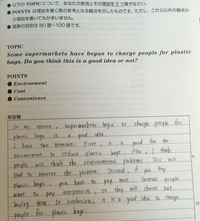 ● 以下の TOPIC について、あなたの意見とその理由を2つ書きなさい。
● POINTS は理由を書く際の参考となる観点を示したものです。ただし、これら以外の観点から理由を書いてもかまいません。
● 語数の目安は80語~100語です。
TOPIC
Some supermarkets have begun to charge people for plastic bags. Do you think this is a good idea or not?
POINTS
● Environment
● Cost
● Convenience
解答欄
In my opinion, supermarkets begin to charge people for
plastic bags is a good idea.
I have two reasons. First, it is good for the
environment to reduce plastic bags. Also, I think
people will think the environmental problems. This will
lead to resolve the problem. Second, if you buy
plastic bags, you have to pay more. Because people
want to pay inexpensive, so they will choose not
buying them. In conclusion, it is a good idea to charge
people for plastic bags.